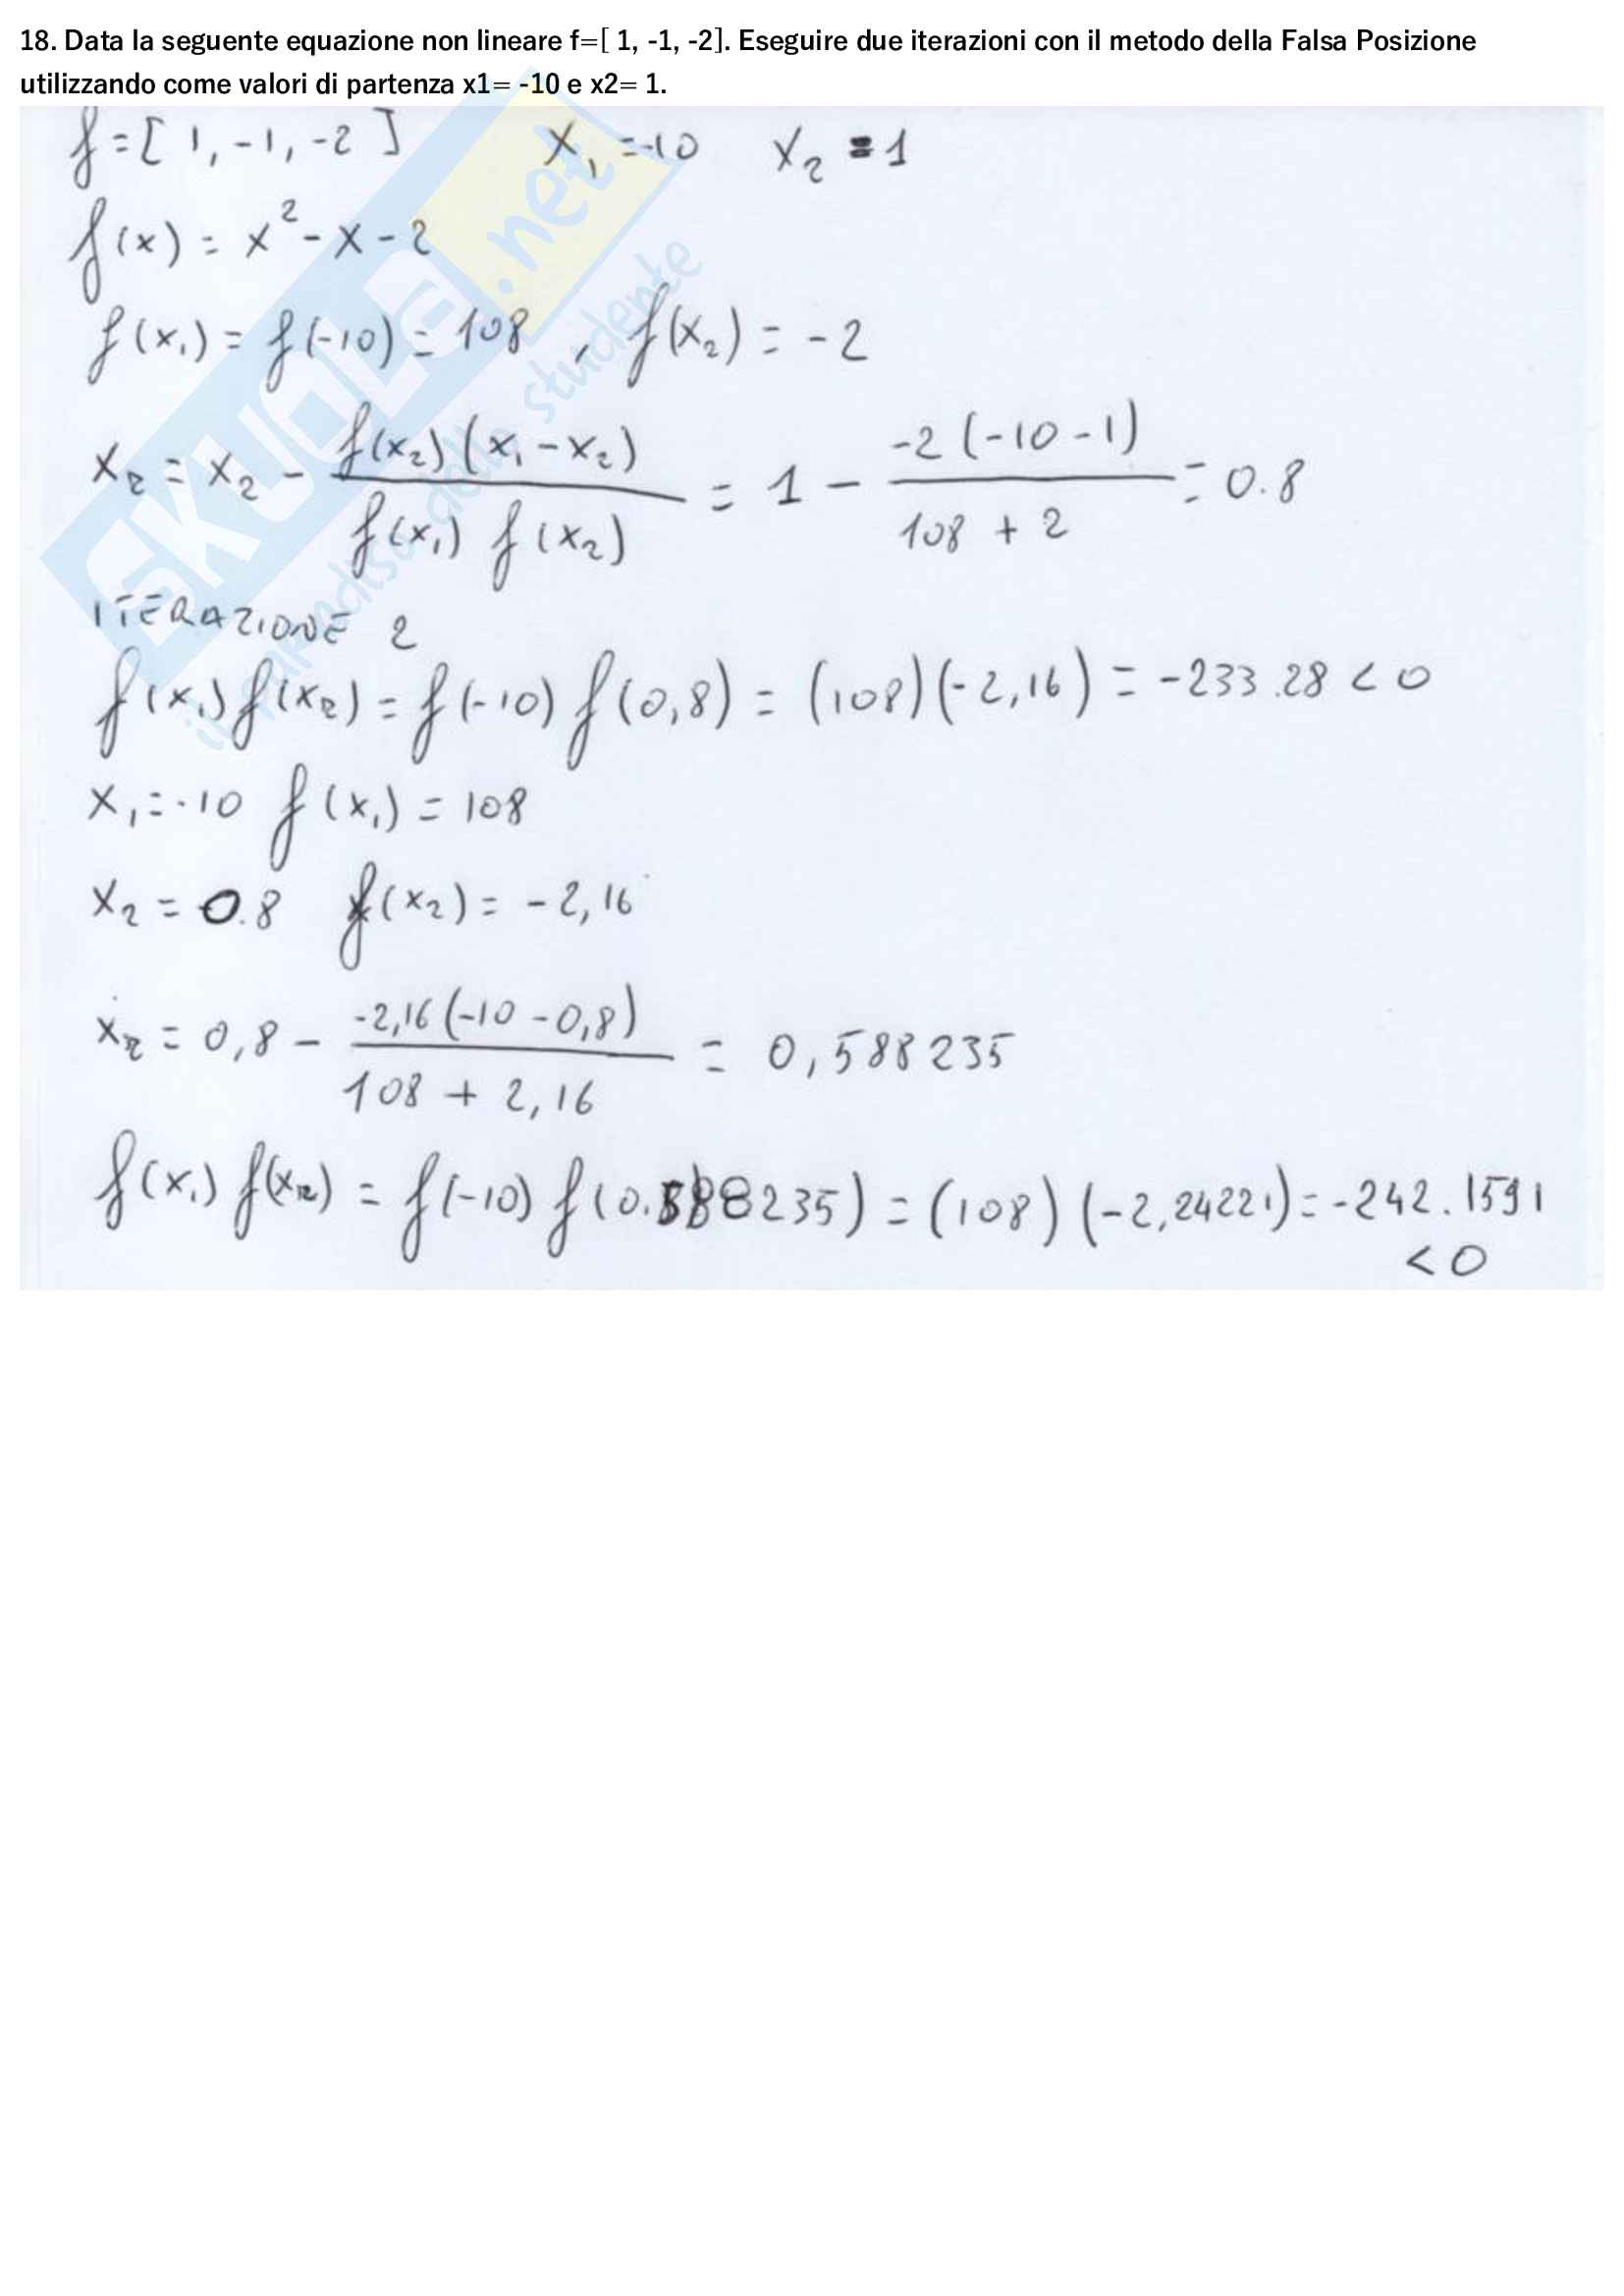 18. Data la seguente equazione non lineare f=[ 1, -1, -2]. Eseguire due iterazioni con il metodo della Falsa Posizione
utilizzando come valori di partenza x1= -10 e x2= 1.
f=[ 1, -1, -2 ] x₁ =-10 x₂ = 1
f(x) = x² - x - 2
f(x₁) = f(-10) = 108 , f(x₂) = -2
xr = x₂ - f(x₂)(x₁ - x₂) / f(x₁) f(x₂) = 1 - -2(-10-1) / 108 + 2 = 0.8
ITERAZIONE 2
f(x₁) f(xr) = f(-10) f(0,8) = (108)(-2,16) = -233.28 < 0
x₁ = -10 f(x₁) = 108
x₂ = 0.8 f(x₂) = -2,16
xr = 0,8 - -2,16(-10 - 0,8) / 108 + 2,16 = 0,588235
f(x₁) f(xr) = f(-10) f(0.588235) = (108) (-2,24221) = -242.1591
< 0
SKUOLA.net
il paradiso dello studente